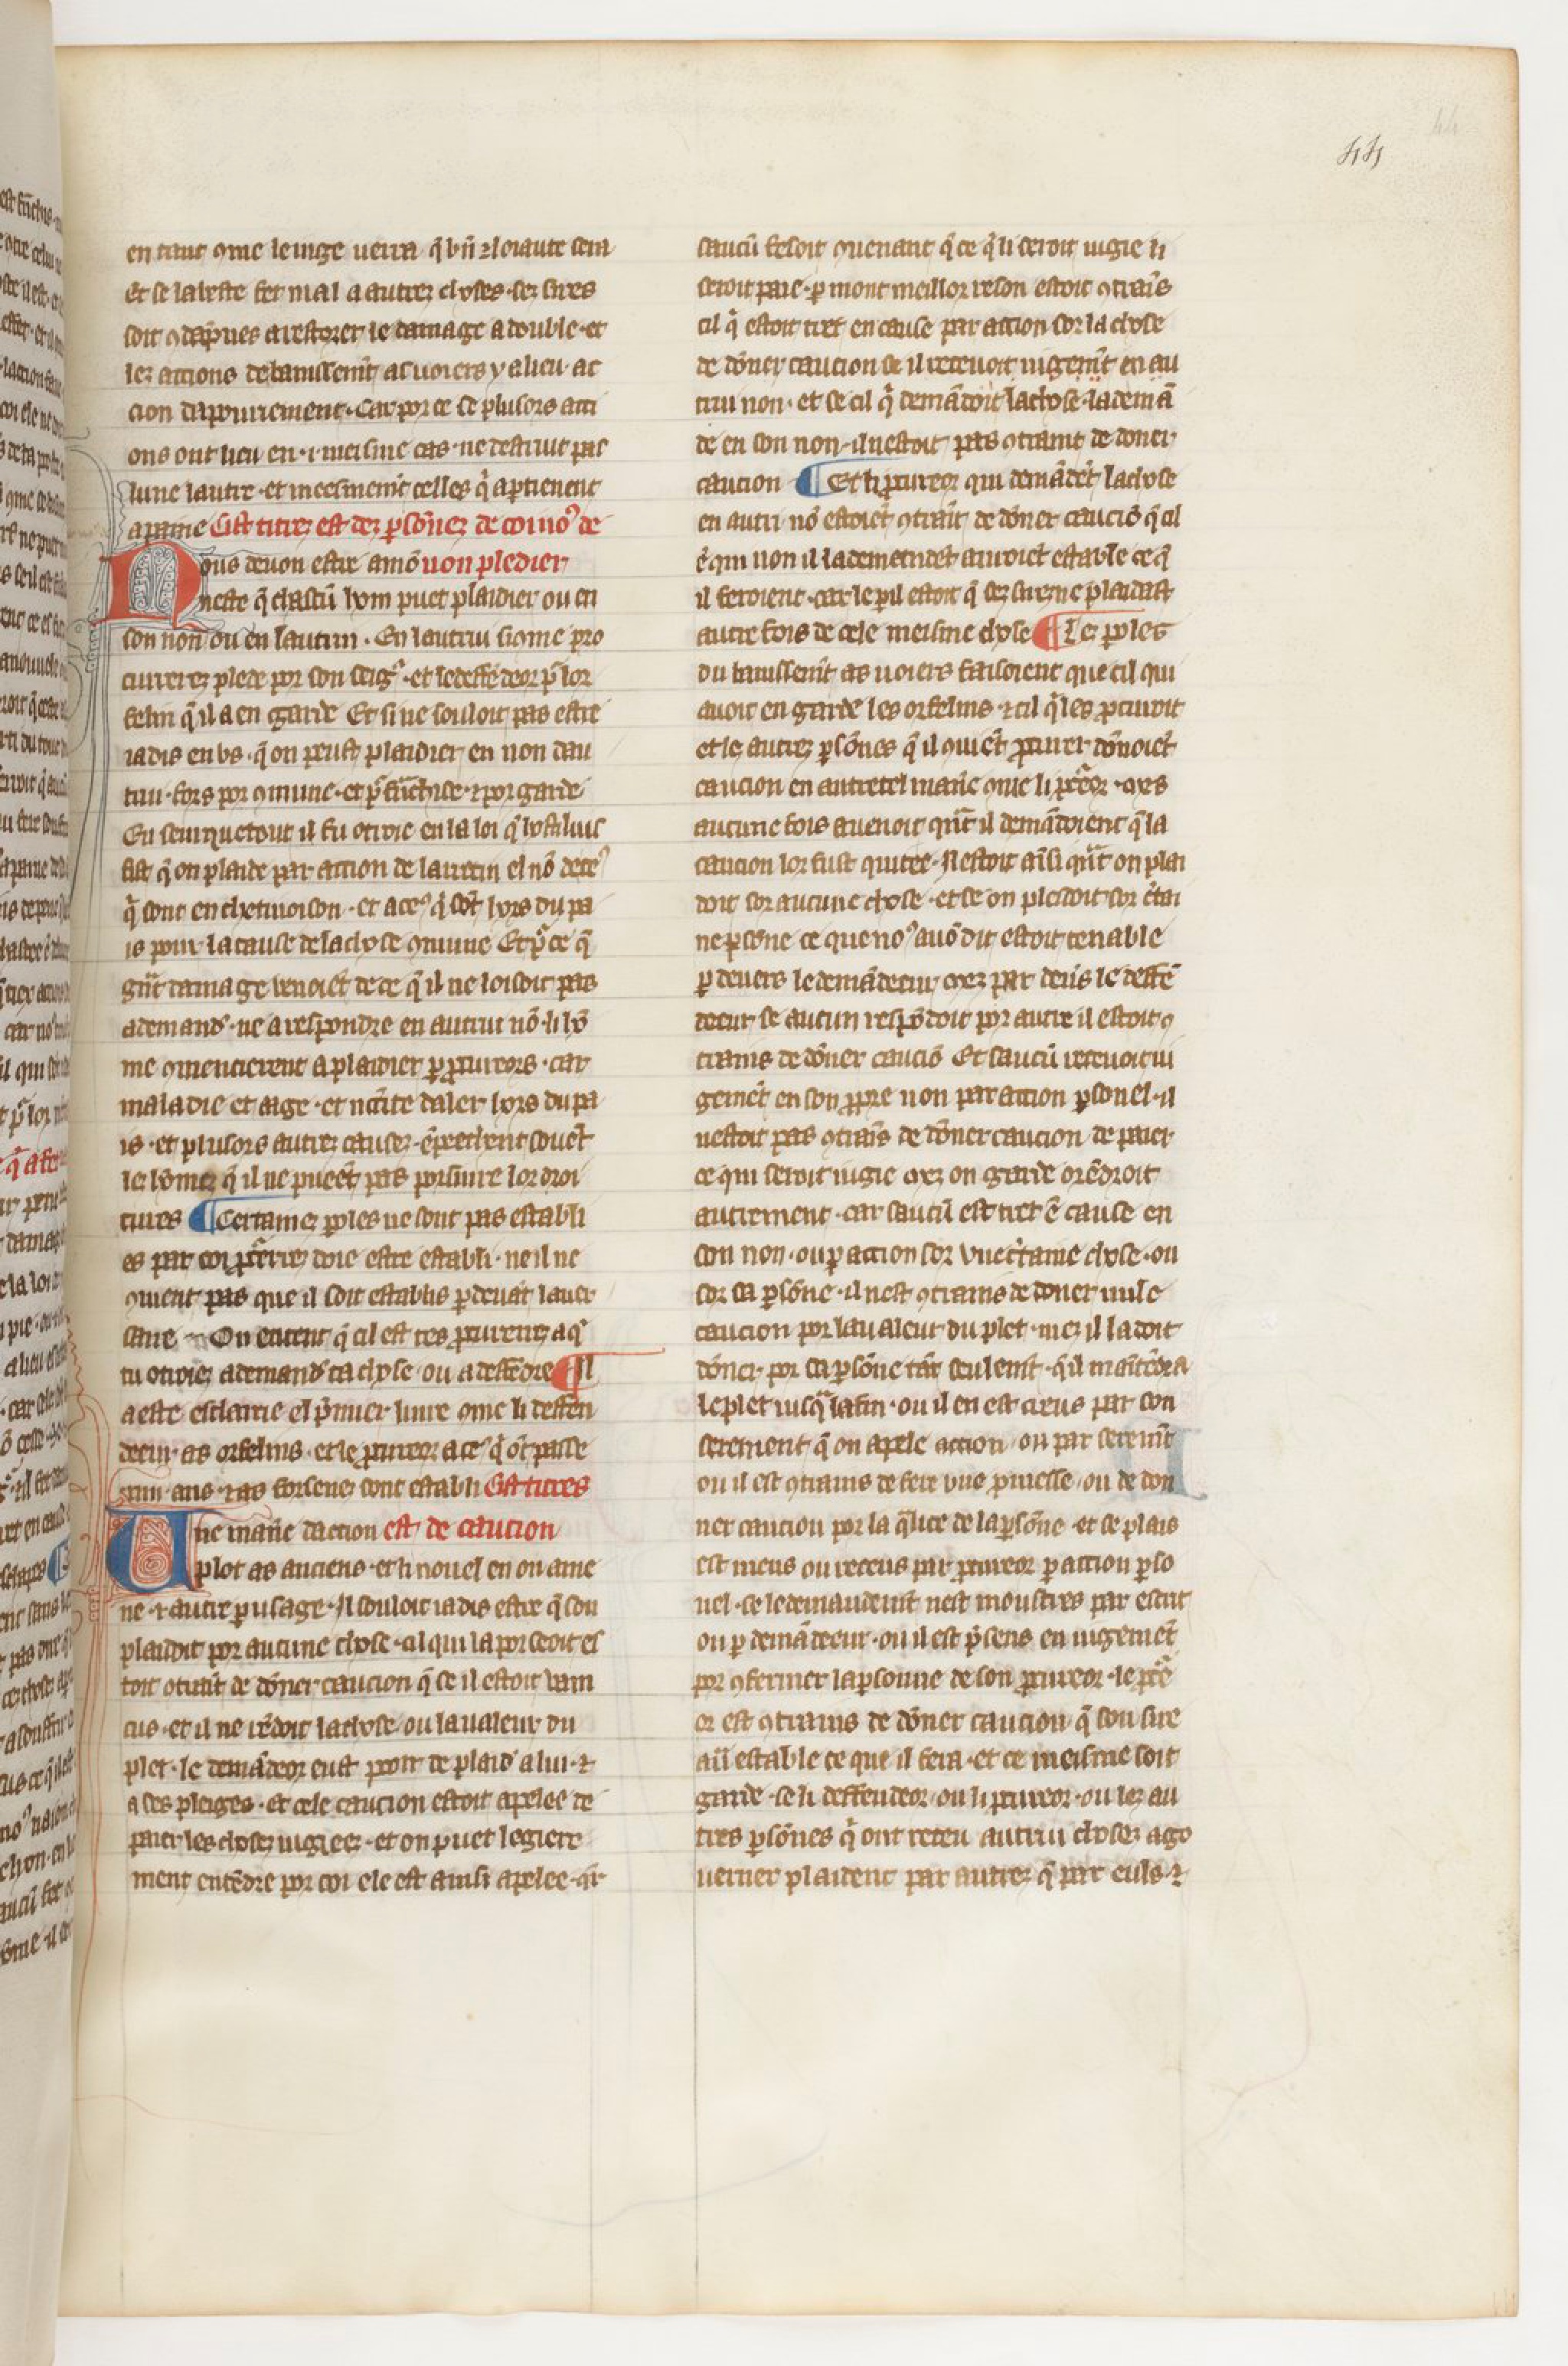 44
en tant ꝯme le iuge uerra q̃ bñ ⁊ loiaute sera
Et se la beste fet mal a autrez choses· sez sires
soit ꝯdãpnes a restorer le damage a double· et
lez actions del banissemt̃ as uoiers y a lieu· ac
cion dapourrement· Car por ce se plusors acti
ons ont lieu en ·i· meisme cas· ne destruit pas
lune lautre· et meesmemt̃ celles q̃ apartienent
a paine Cist titrez est dez ꝑsõnez de coi noꝰ de
Nous deuon estre amõ uon pledier
neste q̃ chascũ hom puet plaidier ou en
son non ou en lautrui· En lautrui si ꝯme pro
cureres plede por son seigr̃· et le deffẽdeor pᵣ lor
felin q̃ il a en garde Et si ne souloit pas estre
iadis en us· q̃ on peust plaidier en non dau
trui· fors por ꝯmune· et pᵣ franchise· ⁊ por garde
En seurquetout il fu otroie en la loi q̃ hostiliuſ
fist q̃ on plaide par action de larrecin el nõ de ceꝰ
q̃ sont en chetiuoison· et a ceꝰ q̃ sõt hors du pa
is pour la cause de la chose ꝯmune Et pᵣ ce q̃
grãt damage uenoiẽt de ce q̃ il ne loisoit pas
a demandʼ· ne a respondre en autrui nõ· li hõ
me ꝯmencierent a plaidier ꝑ ꝓcureors· car
maladie et aage· et necc̃ite daler hors du pa
is· et plusors autrez causez· ẽpeechent souẽt
lez homez q̃ il ne pueẽt pas porsuire lor droi
tures ¶ Certainez ꝑoles ne sont pas establi
es par coi ꝓc̃rerrez doie estre establi· ne il ne
ꝯuient pas que il soit establis ꝑ deuãt lauer
saire On entent q̃ cil est tes ꝓcurerrez a qⁱ
tu otroiez a demandʼ ta chose· ou a deffẽdre ¶ Il
a este esclairie el pᵣmier liure ꝯme li deffen
deeur as orfelins· et le ꝓcureor a ceꝰ q̃ õt passe
.xxiiii· ans· ⁊ as forsenez sont establi Cist titres
Une maniẽ daction est de caucion
plot as anciens· et li nouel en on ame
ne ⁊ autre ꝑ usage· Il souloit iadis estre q̃ son
plaidoit por aucune chose· cil qui la porseoit es
toit ꝯtraĩt de dõner caucion q̃ se il estoit vain
cus· et il ne rẽdoit la chose ou la ualeur du
plet· le demãdeor eust pooir de plaidʼ a lui· ⁊
a ses pleiges· et cele caucion estoit apelee de
paier les chosez iugieez· et on puet legiere
ment entẽdre por coi ele est ainsi apelee· qᵣ
saucũ fesoit ꝯuenant q̃ ce q̃ li seroit iugie li
seroit paie· ꝑ mont meillor reson estoit ꝯtraĩs
cil q̃ estoit tret en cause par action sor la chose
de dõner caucion se il receuoit iugemt̃ en au
trui non· et se cil q̃ demãdoit la chose la demã
de en son non· il nestoit pas ꝯtraint de doner
caucion ¶ Et li ꝓcureor qui demãdẽt la chose
en autri nõ estoiẽt ꝯtraĩt de dõner cauciõ q̃ cil
ẽ qui non il la demendẽt auroiẽt estable ce q̃
il feroient· car le ꝑil estoit q̃ sez sires ne plaidast
autre fois de cele meisme chose ¶ Les ꝑoles
du banissemt̃ as uoiers faisoient que cil qui
auoit en garde les orfelins· ⁊ cil q̃ les ꝓcuroit
et le autrez ꝑsõnes q̃ il ꝯuiẽt ꝓcurer dõnoiẽt
caucion en autretel maniẽ ꝯme li ꝓcᵣeor· mes
aucune fois auenoit qũt il demãdoient q̃ la
caucion lor fust quitee· Il estoit aĩsi qũt on plai
doit sor aucune chose· et se on pledoit sor c̃tai
ne ꝑsõne ce que noꝰ auõ dit estoit tenable
ꝑ deuers le demãdeeur mez par deũs le deffẽ
deeur se aucun respõdoit por autre il estoit ꝯ
trains de dõner cauciõ Et saucũ receuoit iu
gemẽt en son ꝓpre non par action ꝑsonel· il
nestoit pas ꝯtraĩs de dõner caucion de paier
ce qui seroit iugie mez on garde orẽdroit
autrement· car saucũ est tret ẽ cause en
son non· ou ꝑ action sor vne c̃taine chose· ou
sor sa ꝑsõne· il nest ꝯtrains de doner nule
caucion por la ualeur du plet· mez il la doit
dõner· por sa ꝑsõne tãt seulemt̃· q̃ il maĩtẽdra
le plet iusq̃ la fin· ou il en est creus par son
serement q̃ on apele action ou par seremt̃
ou il est ꝯtrains de fere vne ꝓmesse· ou de don
ner caucion por la qualite de la ꝑsõne· et se plais
est meus ou receus par ꝓcureor ꝑ action ꝑso
nel· se le demandemt̃ nest moustres par escrit
ou ꝑ demãdeeur· ou il est pᵣsens en iugemẽt
por ꝯfermer la ꝑsonne de son ꝓcureor· le ꝓcᵣe
or est ꝯtrains de dõner caucion· q̃ son sire
aũ estable ce que il fera· et ce meisme soit
garde· se li deffendeor ou li ꝓcureor· ou lez au
tres ꝑsõnes q̃ ont receu autrui chosez a go
uerner plaident par autrez q̃ par euls· ⁊